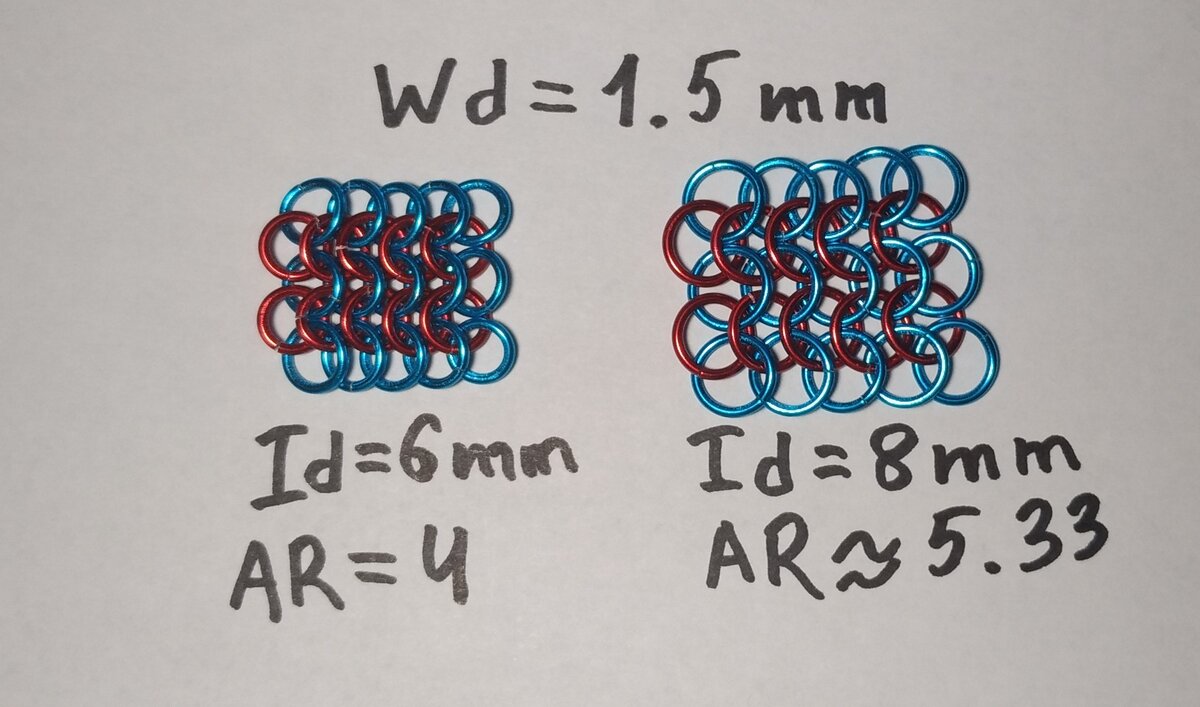 Wd = 1.5 mm
Id = 6 mm
AR = 4
Id = 8 mm
AR ≈ 5.33